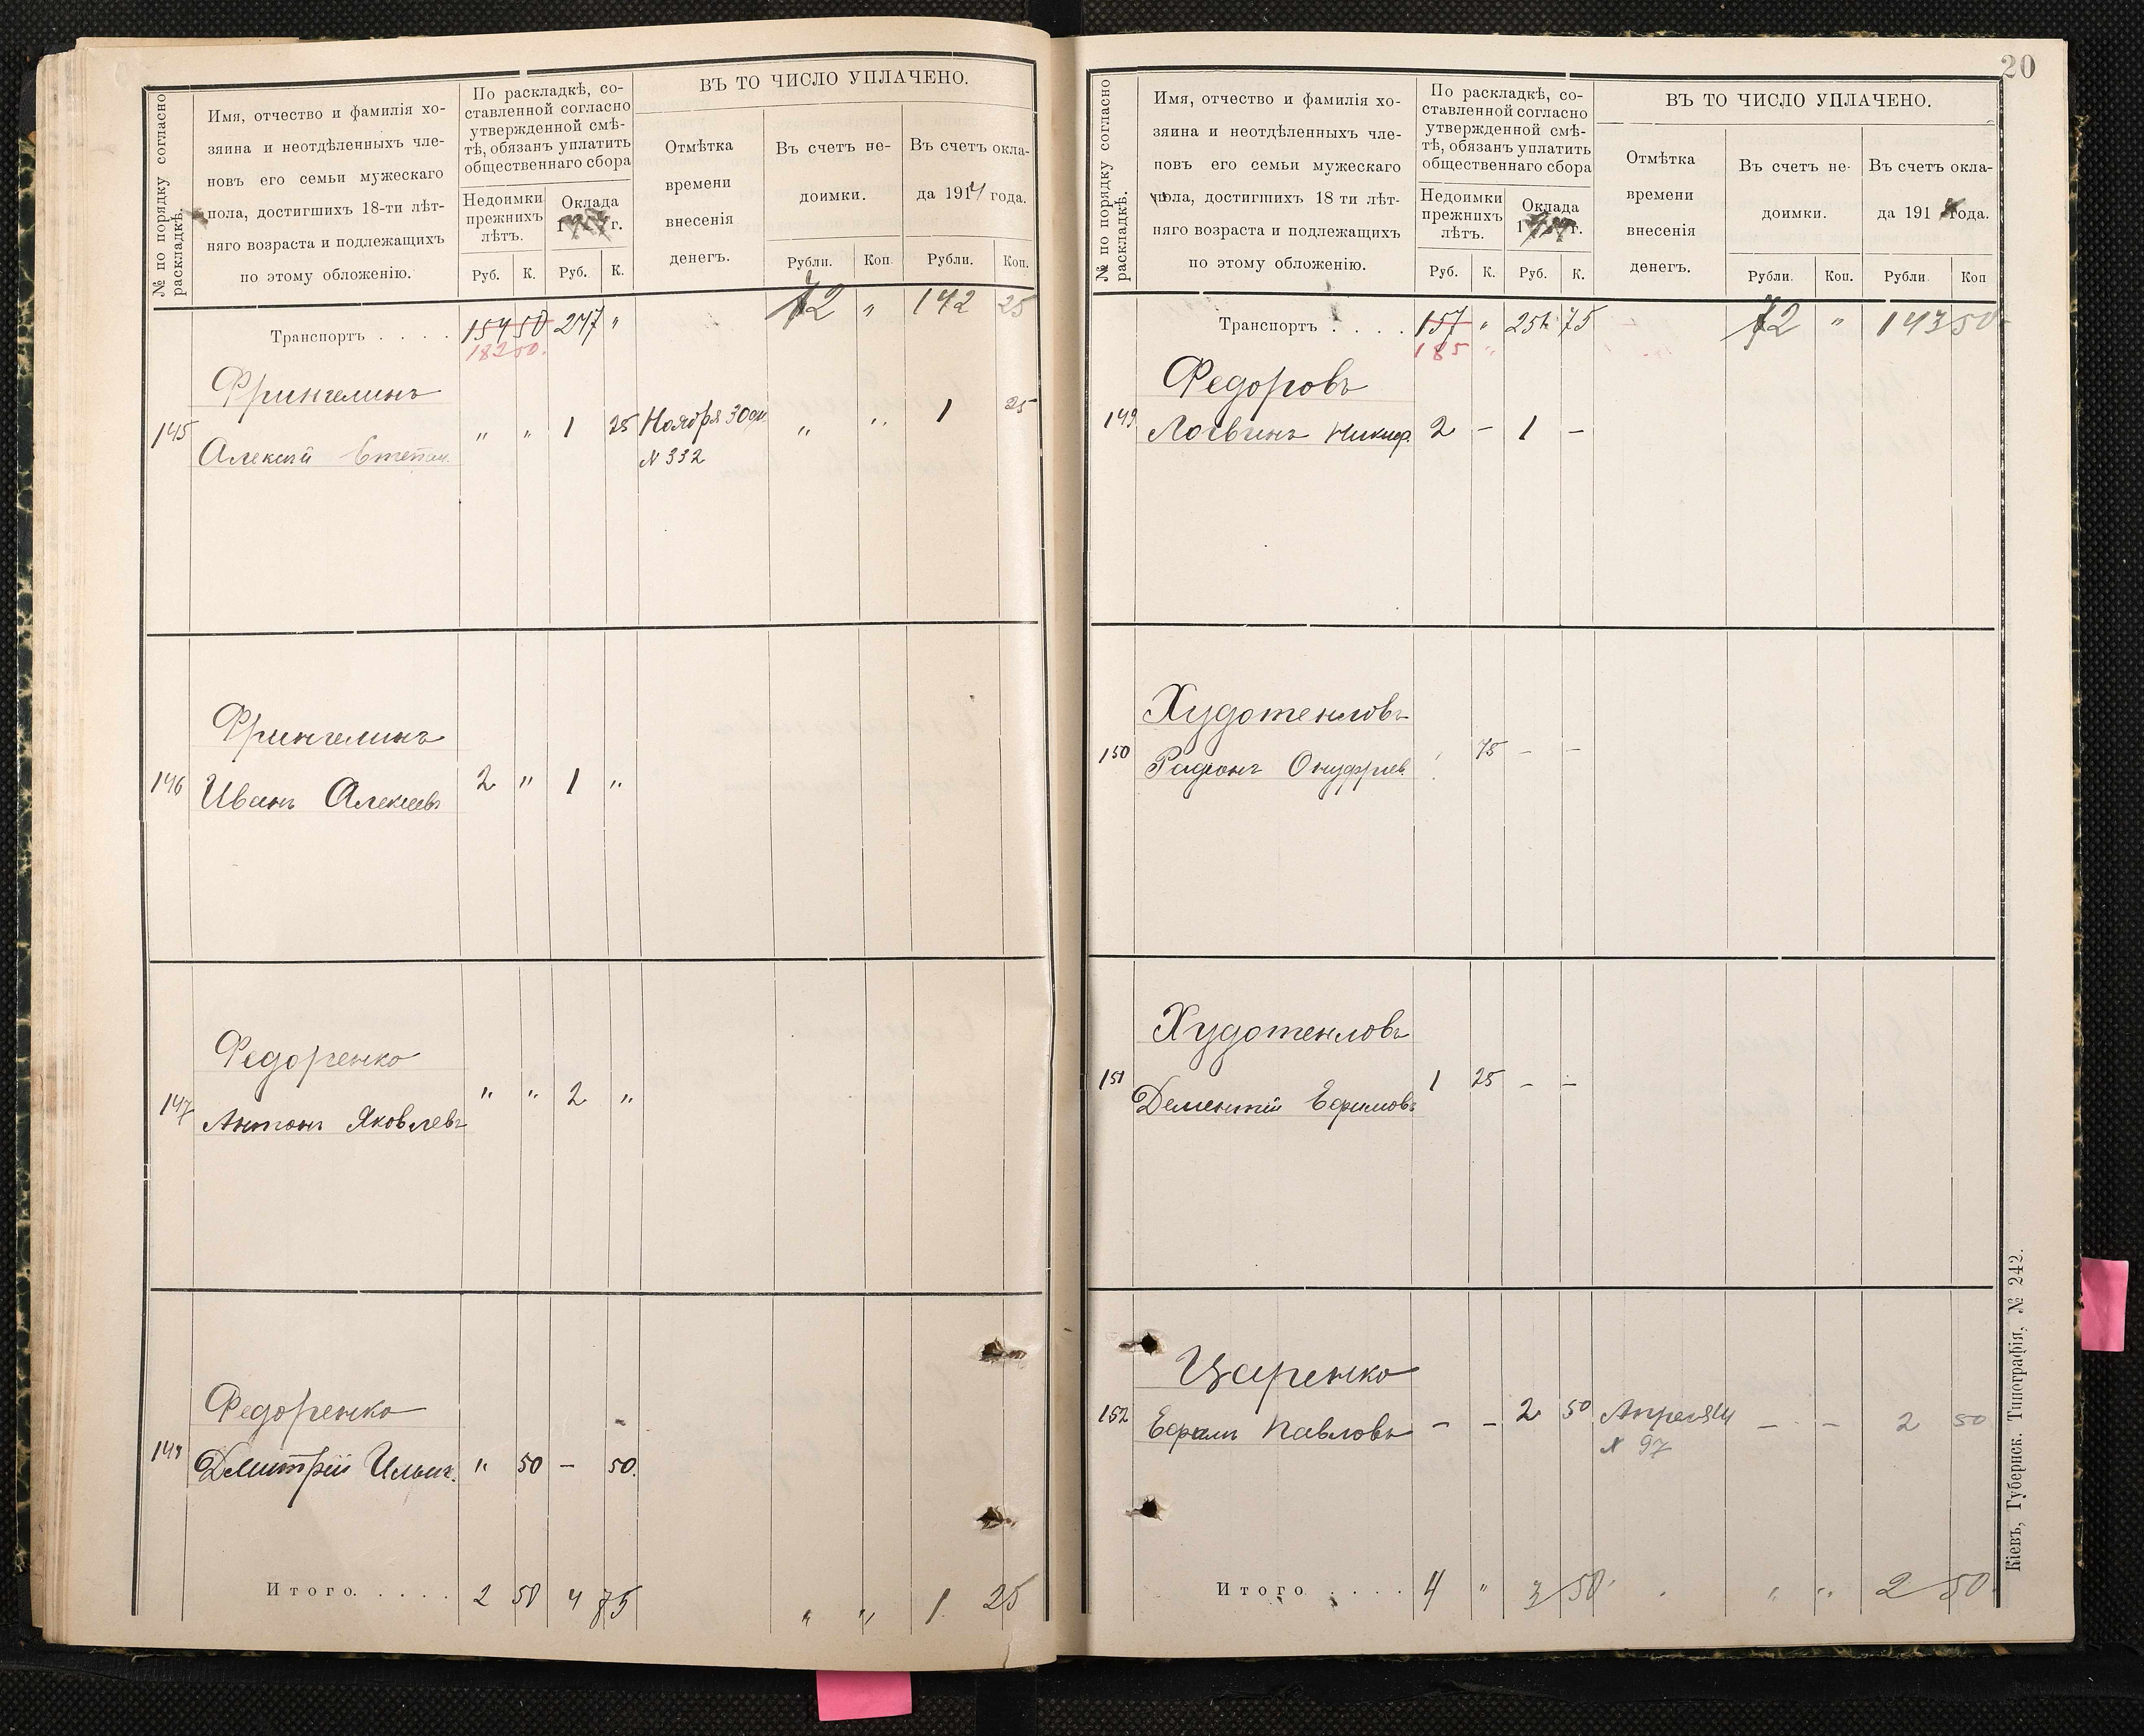 № по порядку согласно
раскладкѣ.
Имя, отчество и фамилія хо-
зяина и неотдѣленныхъ чле-
новъ его семьи мужескаго
пола, достигшихъ 18-ти лѣт-
няго возраста и подлежащихъ
по этому обложенію.
По раскладкѣ, со-
ставленной согласно
утвержденной смѣ-
тѣ, обязанъ уплатить
общественнаго сбора
Недоимки
прежнихъ
лѣтъ.
Оклада
г.
Руб. К. Руб. К.
ВЪ ТО ЧИСЛО УПЛАЧЕНО.
Отмѣтка
времени
внесенія
денегъ.
Въ счетъ не-
доимки.
Въ счетъ окла-
да 1914 года.
Рубли. Коп. Рубли. Коп.
Транспортъ . . . . 154 50 247 " 72 " 142 25
182 50.
Фрингелинъ
145 Алексѣй Степан. " " 1 25 Ноября 30 дн " " 1 25
№ 332
Фрингелинъ
146 Иванъ Алексѣевъ 2 " 1 "
Федоренко
147 Антонъ Яковлевъ " " 2 "
Федоренко
148 Дмитрій Ильич. " 50 – 50.
Итого. . . . . 2 50 4 75 " " 1 25
20
№ по порядку согласно
раскладкѣ.
Имя, отчество и фамилія хо-
зяина и неотдѣленныхъ чле-
новъ его семьи мужескаго
пола, достигшихъ 18 ти лѣт-
няго возраста и подлежащихъ
по этому обложенію.
По раскладкѣ, со-
ставленной согласно
утвержденной смѣ-
тѣ, обязанъ уплатить
общественнаго сбора
Недоимки
прежнихъ
лѣтъ.
Оклада
г.
Руб. К. Руб. К.
ВЪ ТО ЧИСЛО УПЛАЧЕНО.
Отмѣтка
времени
внесенія
денегъ.
Въ счетъ не-
доимки.
Въ счетъ окла-
да 191 года.
Рубли. Коп. Рубли. Коп
Транспортъ . . . . 157 " 251 75 72 " 143 50
185 "
Федоровъ
149 Логвинъ Никиф. 2 – 1 –
Худотепловъ
150 Радіонъ Онуфріев. 75 – –
Худотепловъ
151 Дементій Ефимовъ 1 25 – –
Царенко
152 Ефимъ Павловъ – – 2 50 Апреля 14 – – 2 50
№ 97
Итого . . . . 4 " 3 50 " " 2 50
Кіевъ, Губернск. Типографія, № 242.